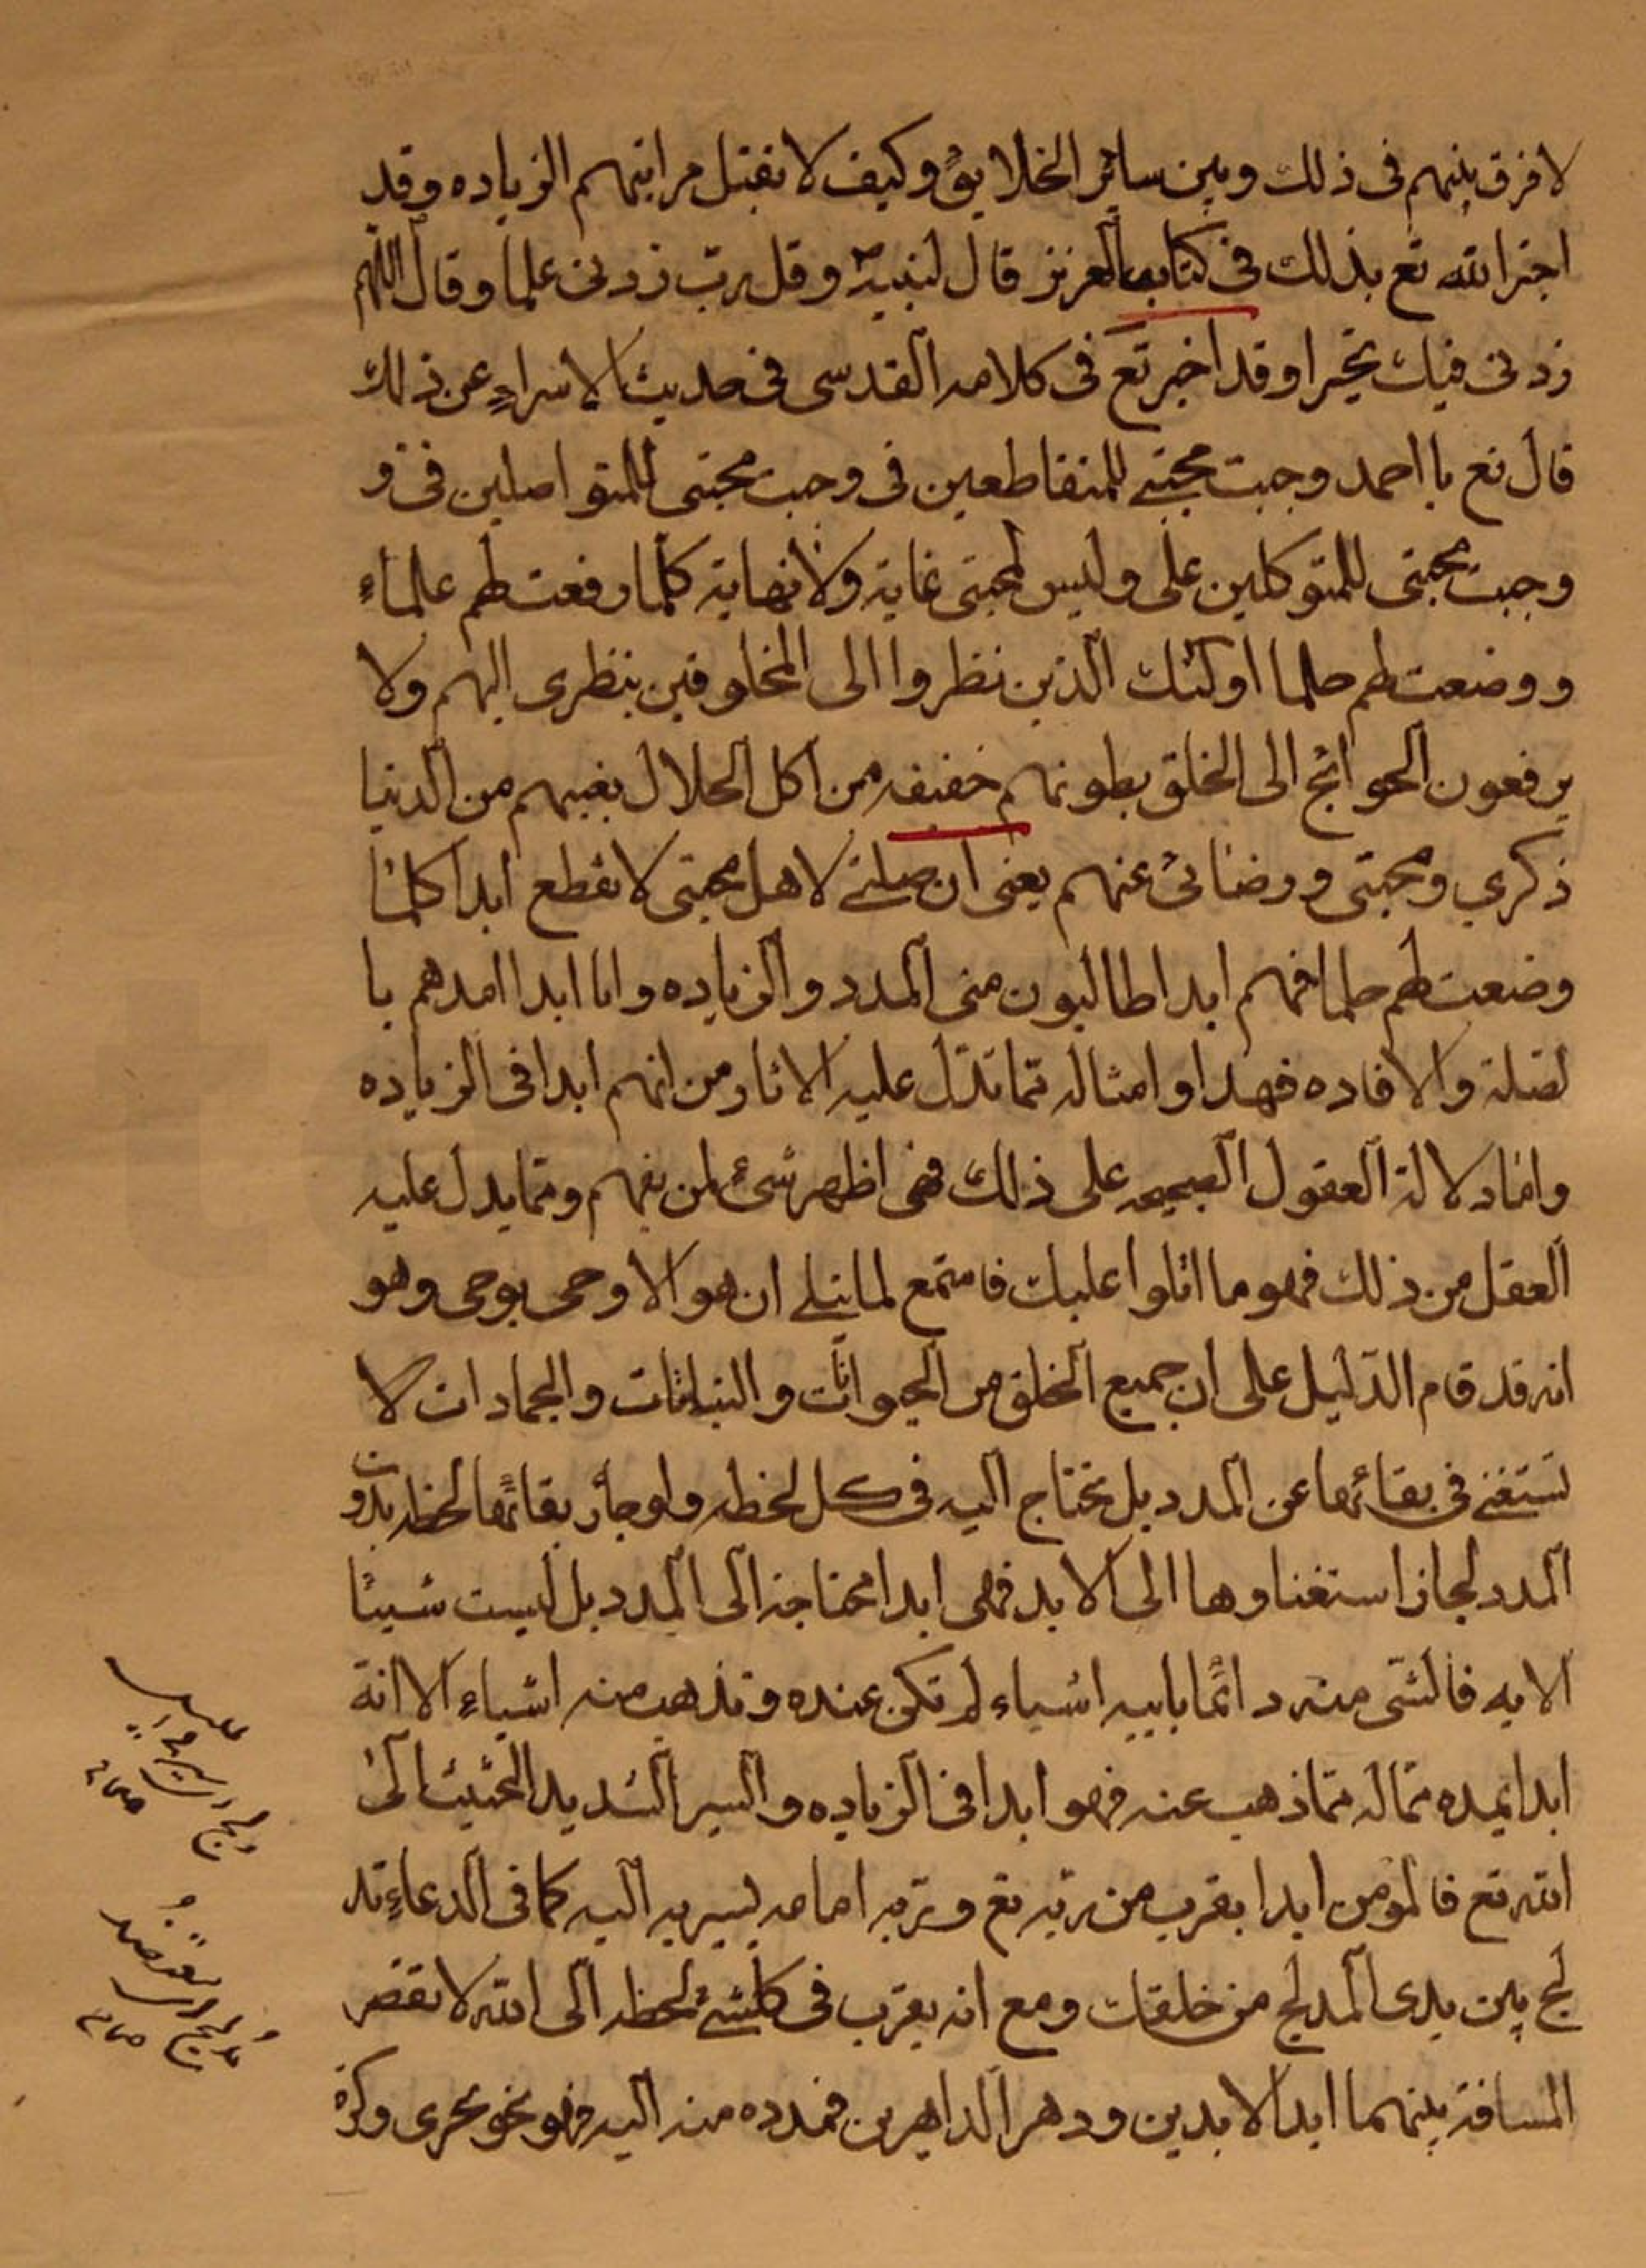 لا فرق بينهم فى ذلك وبين ساير الخلايق وكيف لا تقبل مراتبهم الزياده وقد
اخبر الله تع بذلك فى كتابه العزيز قال لنبيه وقل رب زدنى علما وقال اللهم
زدنى فيك تحيرا وقد اخبر تع فى كلامه القدسى فى حديث الاسراء عن ذلك
قال تع يا احمد وجبت محبتى للمتقاطعين فى وجبت محبتى للمتواصلين فى و
وجبت محبتى للمتوكلين على وليس لمحبتى غاية ولا نهاية كلما رفعت لهم علماء
ووضعت لهم حلما اولئك الذين نظروا الى المخلوقين بنظرى اليهم ولا
يرفعون الحوائج الى الخلق بطونهم خفيفه من اكل الحلال نعيمهم من الدنيا
ذكرى ومحبتى ورضائى عنهم يعنى ان صلتى لاهل محبتى لا تقطع ابدا كلما
وضعت لهم حلما فهم ابدا طالبون منى المدد والزياده وانا ابدا امدهم با
لصلة والافاده فهذا وامثاله مما تدل عليه الاثار من انهم ابدا فى الزياده
واما دلالة العقول الصحيحه على ذلك فهى اظهر شئ لمن يفهم ومما يدل عليه
العقل من ذلك فهو ما اتلوا عليك فاستمع لما يتلى ان هو الا وحى يوحى وهو
انه قد قام الدليل على ان جميع الخلق من الحيوانات والنباتات والجمادات لا
تستغنى فى بقائها عن المدد بل تحتاج اليه فى كل لحظه ولو جاز بقائها لحظه بدون
المدد لجاز استغناوها الى الابد فهى ابدا محتاجة الى المدد بل ليست شيئا
الا به فالشى منه دائما يابيه اشياء لم تكن عنده وتذهب منه اشياء الا انه
ابدا يمده مما له مما ذهب عنه فهو ابدا فى الزياده والسير الشديد الحثيث الى
الله تع فالمؤمن ابدا يقرب من ربه تع وربه امامه يسير به اليه كما فى الدعاء تد
لج بين يدى المدلج من خلقك ومع انه يقرب فى كلشئ لحظه الى الله لا تقضر
المسافة بينهما ابد الابدين ودهر الداهرين فمدده منه اليه فهو نحو يجرى وكرة